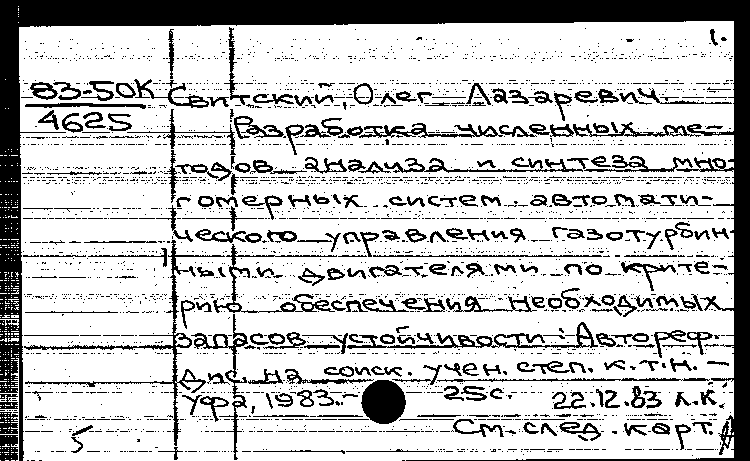 1.
83-50К Свитский, Олег Лазаревич.
4625
Разработка численных ме-
тодов анализа и синтеза мно-
гомерных систем автомати-
ческого управления газотурбин-
ными двигателями по крите-
рию обеспечения необходимых
запасов устойчивости : Автореф.
дис. на соиск. учен. степ. к.т.н. –
Уфа, 1983.– 25с. 22.12.83 л.к.
5 См. след. карт.